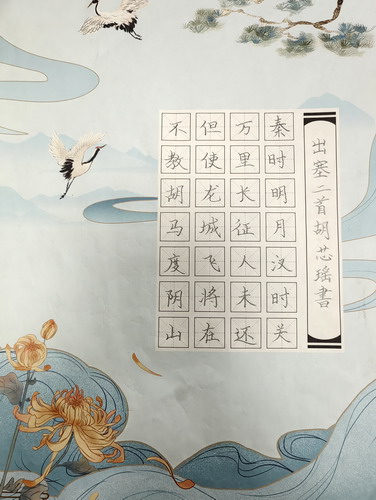 出塞二首胡芯瑶書
秦时明月汉时关
万里长征人未还
但使龙城飞将在
不教胡马度阴山